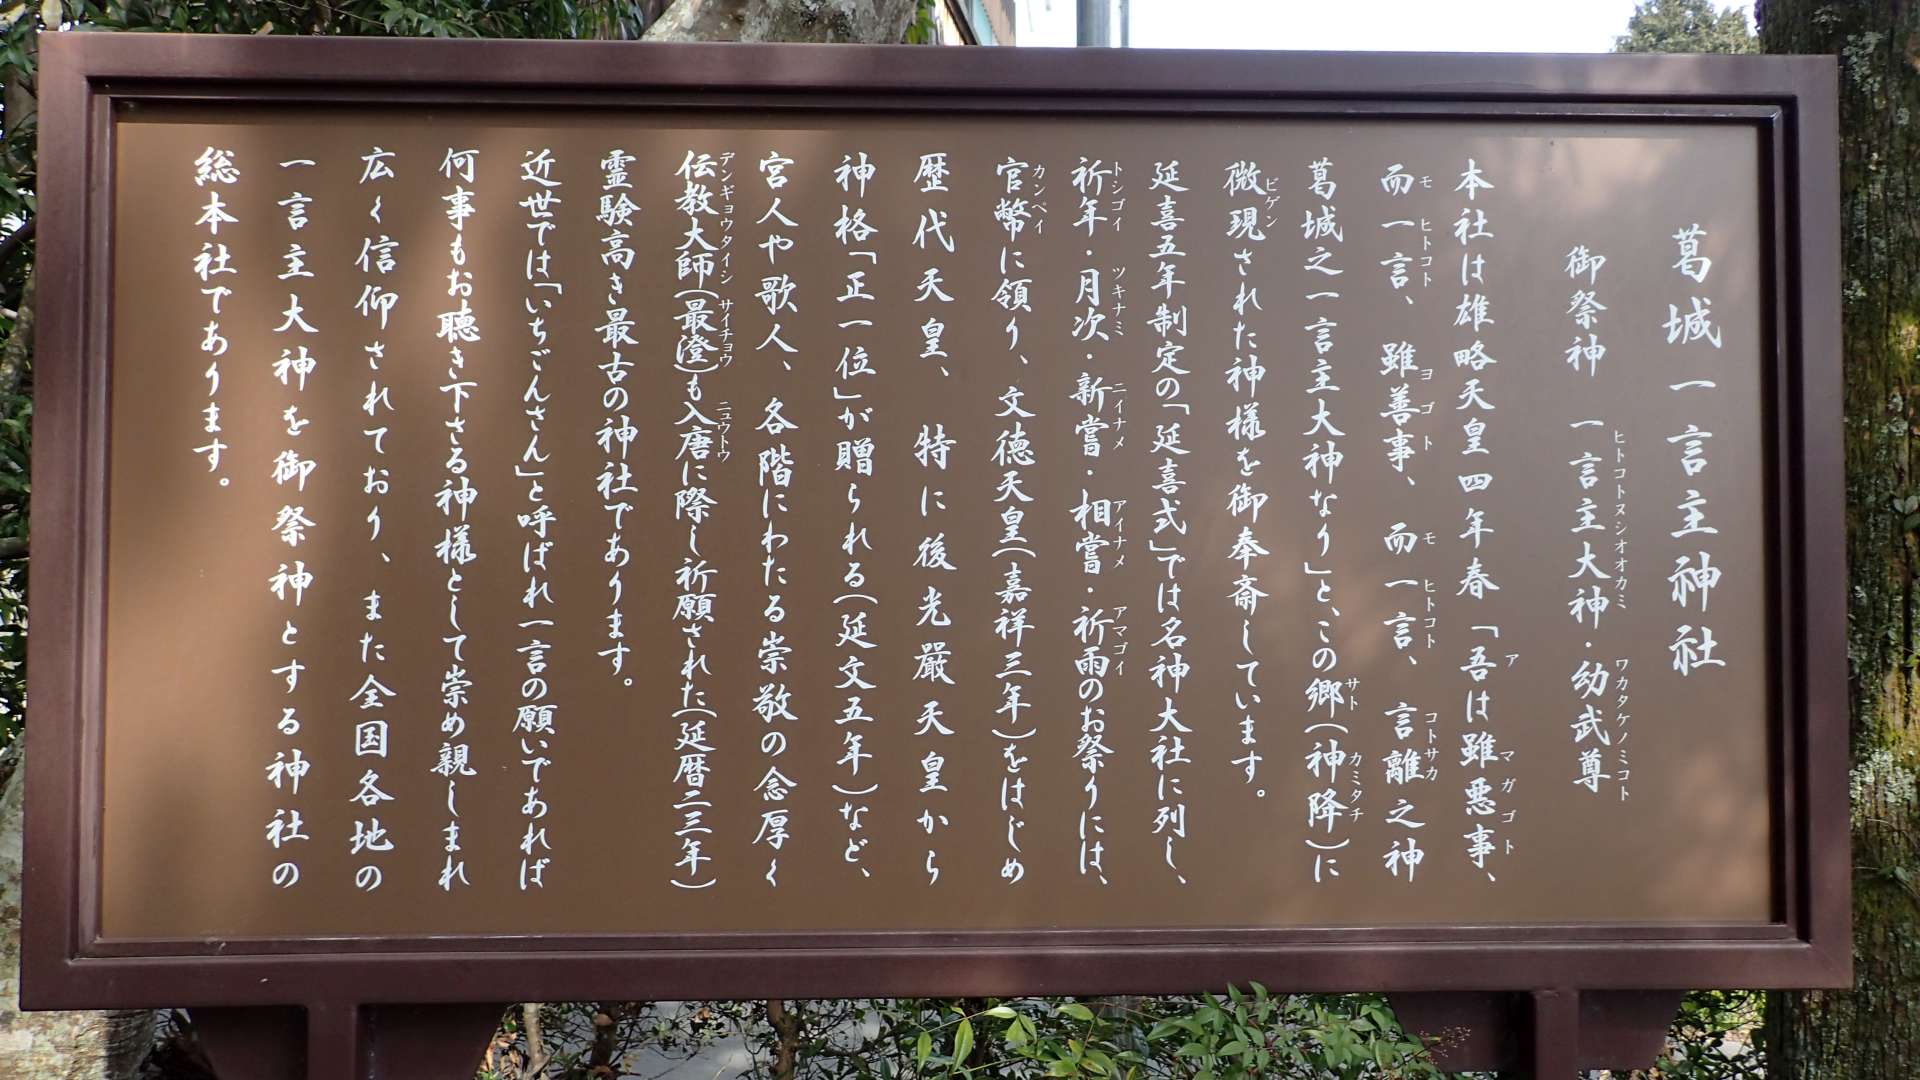 葛城一言主神社
御祭神 一言主大神・幼武尊
ヒトコトヌシオオカミ ワカタケノミコト
本社は雄略天皇四年春「吾は雖悪事、
ア マガゴト
而一言、雖善事、而一言、言離之神
モ ヒトコト ヨゴト モ ヒトコト コトサカ
葛城之一言主大神なり」と、この郷(神降)に
サト カミタチ
微現された神様を御奉斎しています。
ビゲン
延喜五年制定の「延喜式」では名神大社に列し、
祈年・月次・新嘗・相嘗・祈雨のお祭りには、
トシゴイ ツキナミ ニイナメ アイナメ アマゴイ
官幣に領り、文徳天皇(嘉祥三年)をはじめ
カンペイ
歴代天皇、特に後光嚴天皇から
神格「正一位」が贈られる(延文五年)など、
宮人や歌人、各階にわたる崇敬の念厚く
伝教大師(最澄)も入唐に際し祈願された(延暦二三年)
デンギョウタイシ サイチョウ ニュウトウ
霊験高き最古の神社であります。
近世では「いちごんさん」と呼ばれ一言の願いであれば
何事もお聴き下さる神様として崇め親しまれ
広く信仰されており、また全国各地の
一言主大神を御祭神とする神社の
総本社であります。